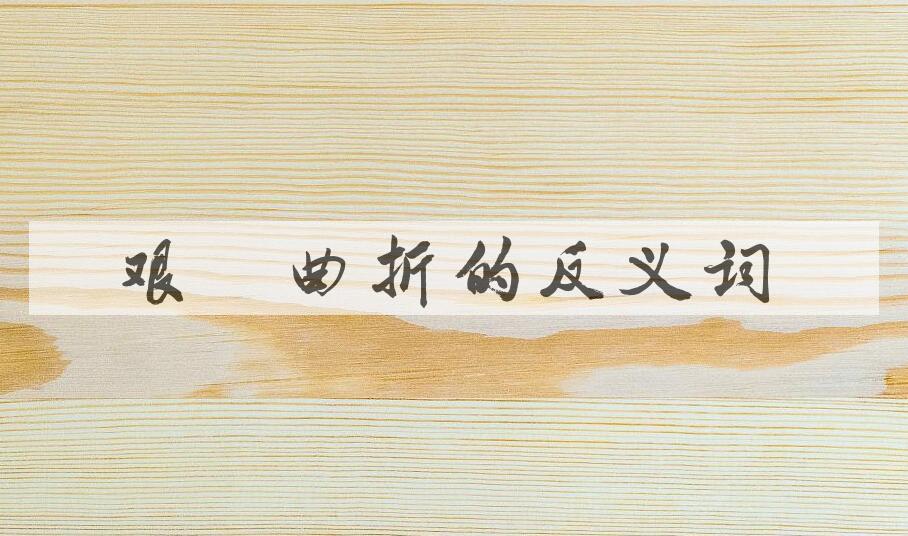 艰 曲折的反义词